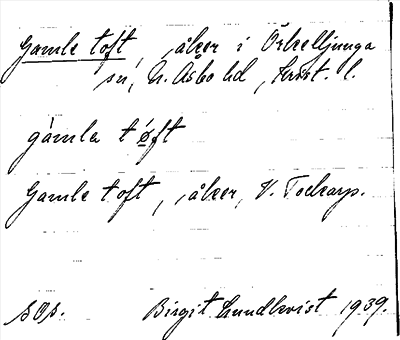 Gamle toft, åker i Örkelljunga
sn, N. Åsbo hd, Krist. l.
gamla tøft
Gamle toft, åker, V. Torkarp.
SOS. Birgit Lundkvist 1939.